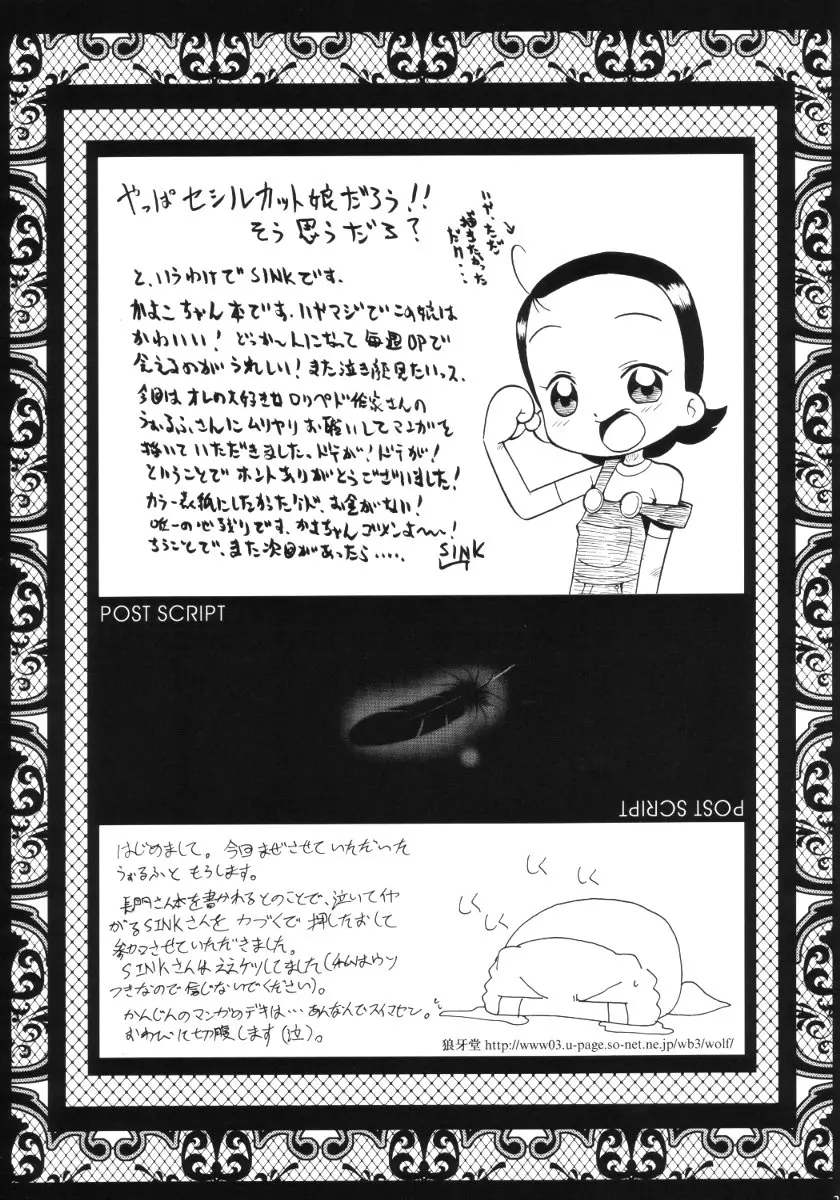 やっぱセシルカット娘だろう!!
そう思うだろ?
いや、ただ
描きたかった
だけ…
と、いうわけでSINKです。
かよこちゃん本です。いやマジでこの娘は
かわいい!どっか〜ん になって毎週OPで
会えるのがうれしい!また泣き顔見たいっス。
今回はオレの大好きな ロリペド作家さんの
うぉるふさんにムリヤリお願いしてマンガを
描いていただきました。ドテが!ドテが!
ということで ホントありがとうございました!
カラー表紙にしたかったけど、お金がない!
唯一の心残りです。かよちゃんゴメンよ〜〜!
ちうことで、また次回があったら……
SINK
POST SCRIPT
POST SCRIPT
はじめまして。今回まぜさせていただいた
うぉるふと もうします。
長門さん本を書かれるとのことで、泣いてイヤ
がるSINKさんを 力づくで 押したおして
参加させていただきました。
SINKさんはええケツしてました(私はウソ
つきなので信じないでください)。
かんじんのマンガのデキは…あんなんでスイマセン。
おわびに切腹します(泣)。
しく
しく
しく
しく
狼牙堂 http://www03.u-page.so-net.ne.jp/wb3/wolf/